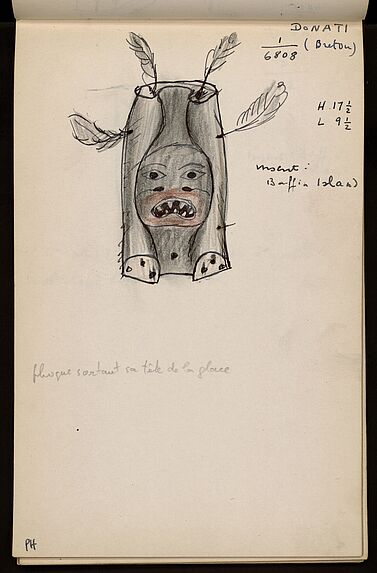 DONATI
1
6808 (Breton)
H 17 1/2
L 9 1/2
inscrit :
Baffin Island
phoque sortant sa tête de la glace
PH